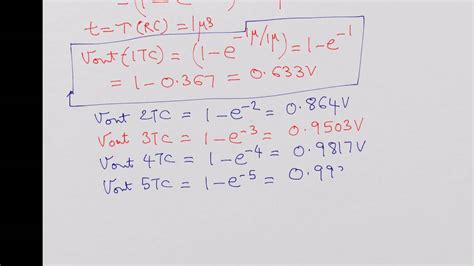 t = T(RC) = 1μs
Vout(1TC) = (1-e^-1μ/1μ) = 1-e^-1
= 1-0.367 = 0.633V
Vout 2TC = 1-e^-2 = 0.864V
Vout 3TC = 1-e^-3 = 0.9503V
Vout 4TC = 1-e^-4 = 0.9817V
Vout 5TC = 1-e^-5 = 0.99